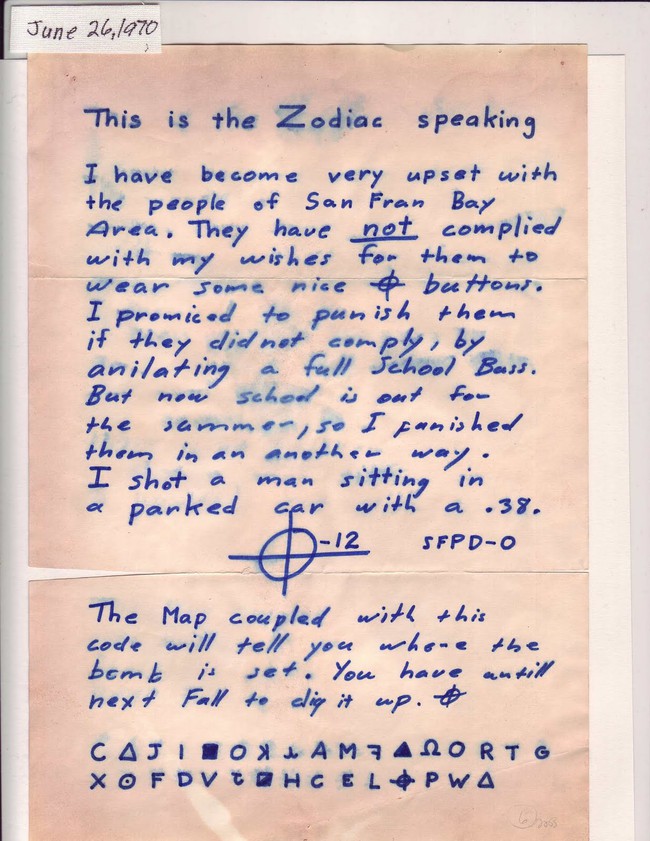 June 26, 1970
This is the Zodiac speaking
I have become very upset with
the people of San Fran Bay
Area. They have not complied
with my wishes for them to
wear some nice ⌖ buttons.
I promiced to punish them
if they did not comply, by
anilating a full School Buss.
But now school is out for
the summer, so I punished
them in an another way.
I shot a man sitting in
a parked car with a .38.
⌖-12 SFPD-0
The Map coupled with this
code will tell you where the
bomb is set. You have untill
next Fall to dig it up. ⌖
C Δ J I ■ O ʞ A M ꟻ ▲ Ω O R T G
X ⊙ F D V ◪ H C E L ⌖ P W Δ